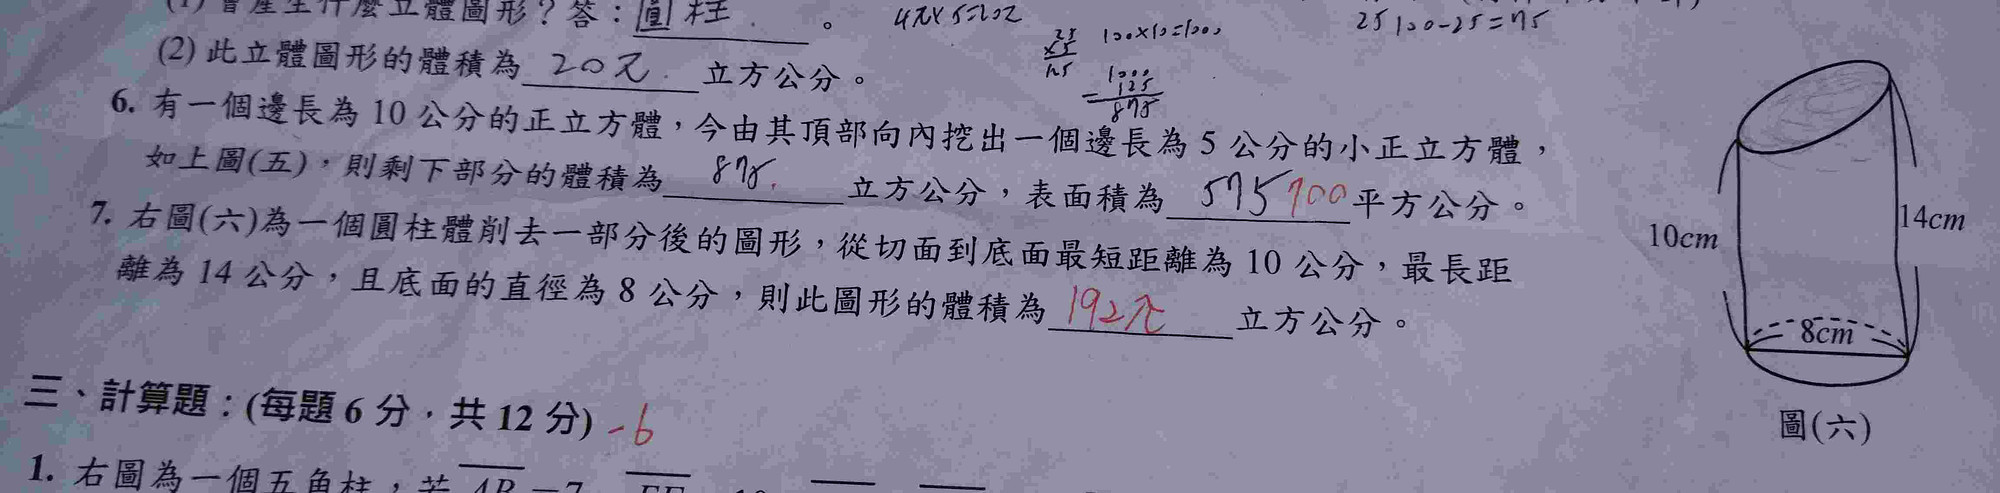 (1) 會產生什麼立體圖形？答：圓柱。
4π×5=20π
25
×5
125
100×10=1000
1000
125
875
25 100-25=75
(2) 此立體圖形的體積為 20π 立方公分。
6. 有一個邊長為 10 公分的正立方體，今由其頂部向內挖出一個邊長為 5 公分的小正立方體，
如上圖(五)，則剩下部分的體積為 875 立方公分，表面積為 575 700 平方公分。
7. 右圖(六)為一個圓柱體削去一部分後的圖形，從切面到底面最短距離為 10 公分，最長距
離為 14 公分，且底面的直徑為 8 公分，則此圖形的體積為 192π 立方公分。
10cm
14cm
8cm
圖(六)
三、計算題：(每題 6 分，共 12 分) -6
1. 右圖為一個五角柱，若